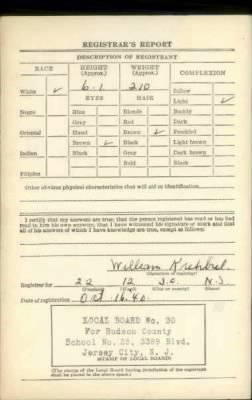 REGISTRAR'S REPORT
DESCRIPTION OF REGISTRANT
RACE HEIGHT (Approx.) WEIGHT (Approx.) COMPLEXION
White ✓ 6-1 210 Sallow
EYES HAIR Light ✓
Negro Blue Blonde Ruddy
Gray Red Dark
Oriental Hazel Brown ✓ Freckled
Brown ✓ Black Light brown
Indian Black Gray Dark brown
Bald Black
Filipino
Other obvious physical characteristics that will aid in identification
I certify that my answers are true; that the person registered has read or has had
read to him his own answers; that I have witnessed his signature or mark and that
all of his answers of which I have knowledge are true, except as follows:
William
(Signature of registrar)
Registrar for 22 12 J.C. N.J.
(Precinct) (Ward) (City or county) (State)
Date of registration Oct 16-40
LOCAL BOARD No. 30
For Hudson County
School No. 28, 3389 Blvd.
Jersey City, N. J.
(STAMP OF LOCAL BOARD)
(The stamp of the Local Board having jurisdiction of the registrant
shall be placed in the above space.)